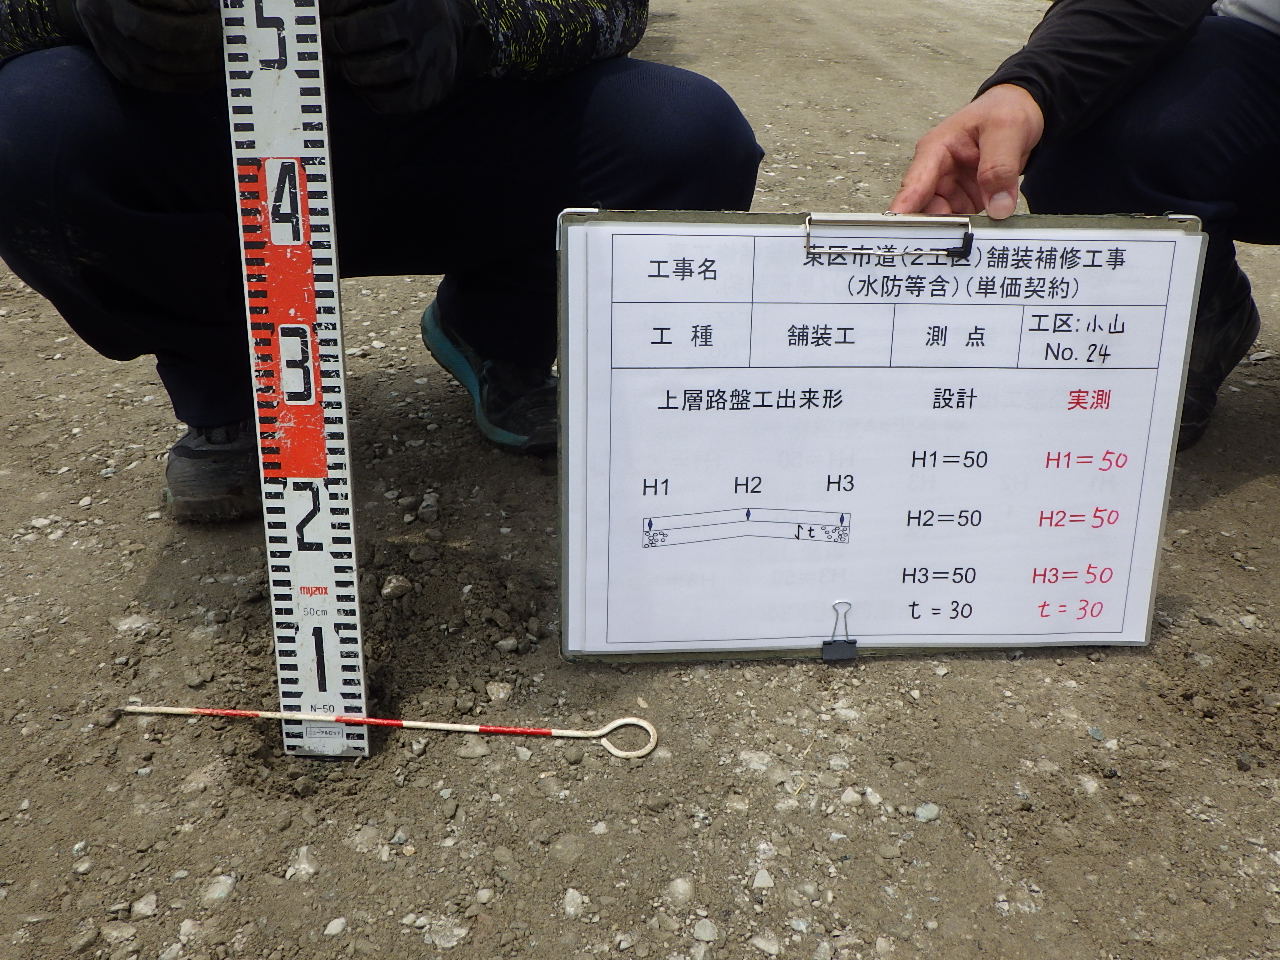 5
4
3
2
myzox
50cm
1
N-50
工事名
東区市道(2工区)舗装補修工事
(水防等含)(単価契約)
工 種
舗装工
測 点
工区:小山
No. 24
上層路盤工出来形
設計
実測
H1=50
H1=50
H1
H2
H3
H2=50
H2=50
t
H3=50
H3=50
t=30
t=30